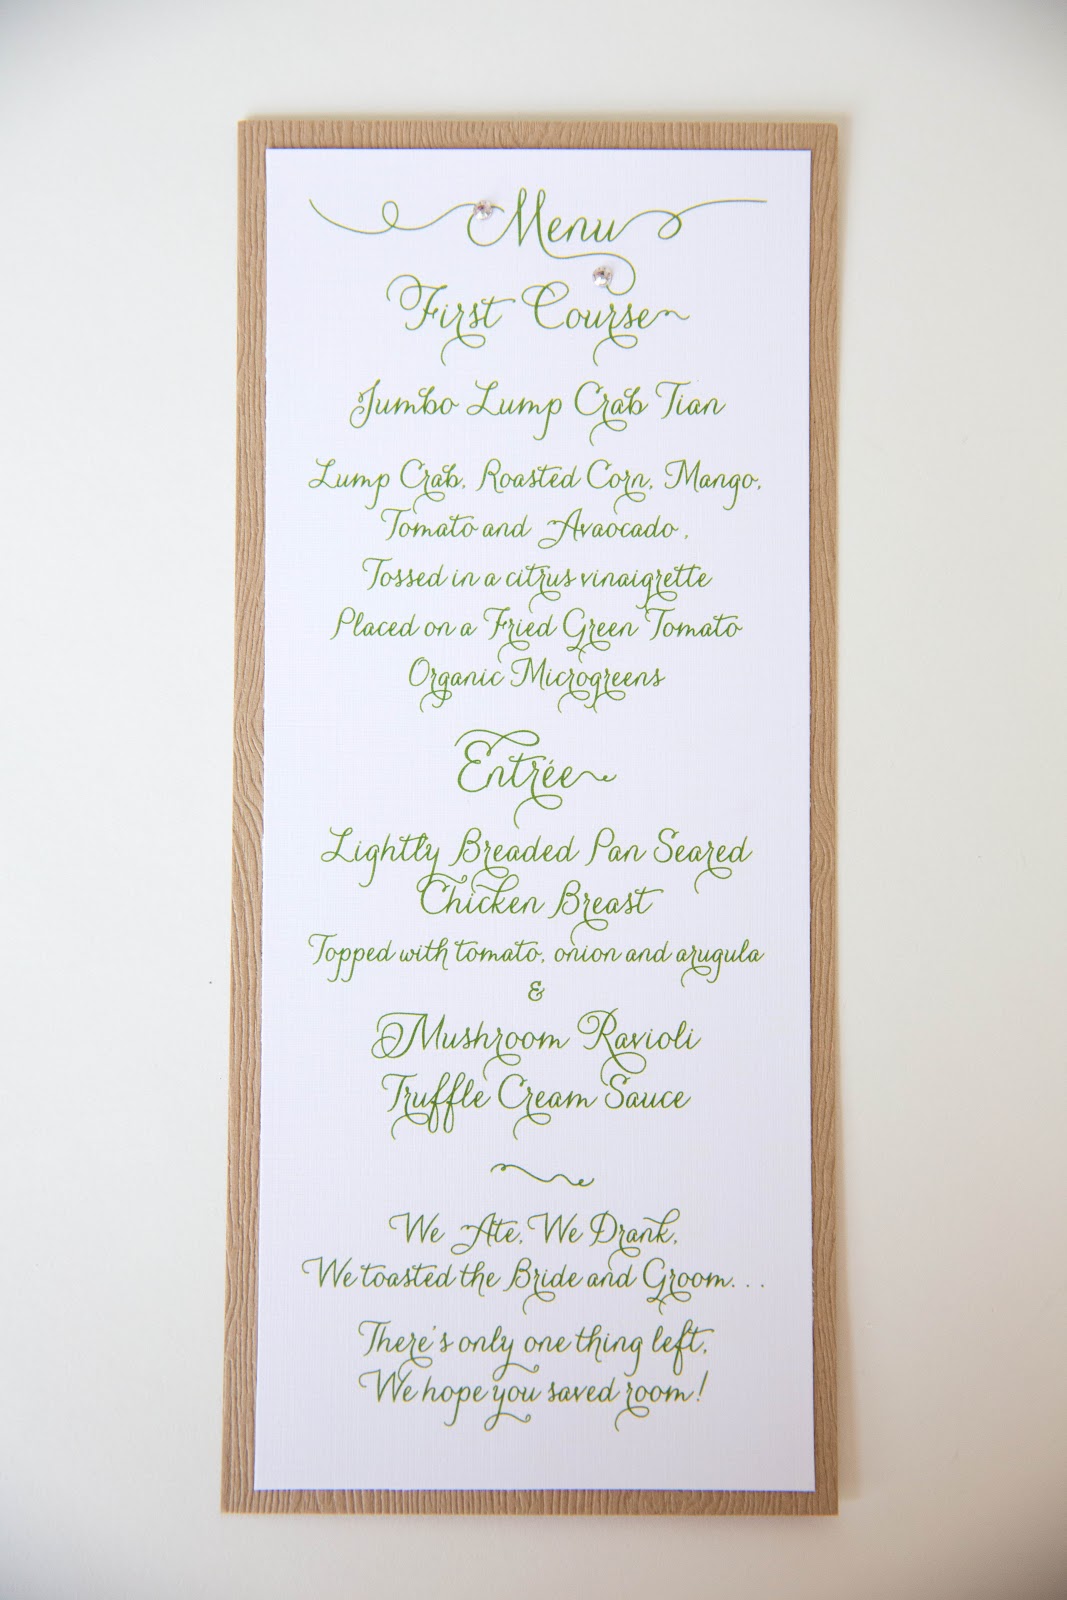 Menu
First Course
Jumbo Lump Crab Tian
Lump Crab, Roasted Corn, Mango,
Tomato and Avaocado ,
Tossed in a citrus vinaigrette
Placed on a Fried Green Tomato
Organic Microgreens
Entrée
Lightly Breaded Pan Seared
Chicken Breast
Topped with tomato, onion and arugula
&
Mushroom Ravioli
Truffle Cream Sauce
We Ate, We Drank,
We toasted the Bride and Groom. . .
There's only one thing left,
We hope you saved room!